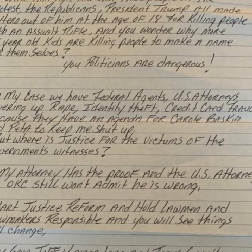 the Republicans, President Trump still made
Hero out of him at the age of 18 For Killing people
th an Assault Rifle. And you wonder why more
year old Kids Are Killing people to make a name
themselves?
you Politicians are dangerous!
my case we have Federal Agents, U.S. Attorneys
vering up Rape, Identity theft, Credit Card Fraud
cause they Have an agenda For Carole Baskin
Peta to Keep me Shut up,
ut where is Justice For the Victims OF the
overnments witnesses?
My Attorney Has the proof And the U.S. Attorney
still won't Admit he is wrong,
tart Justice Reform and Hold Lawmen and
wmakers Responsible And you will see things
change,